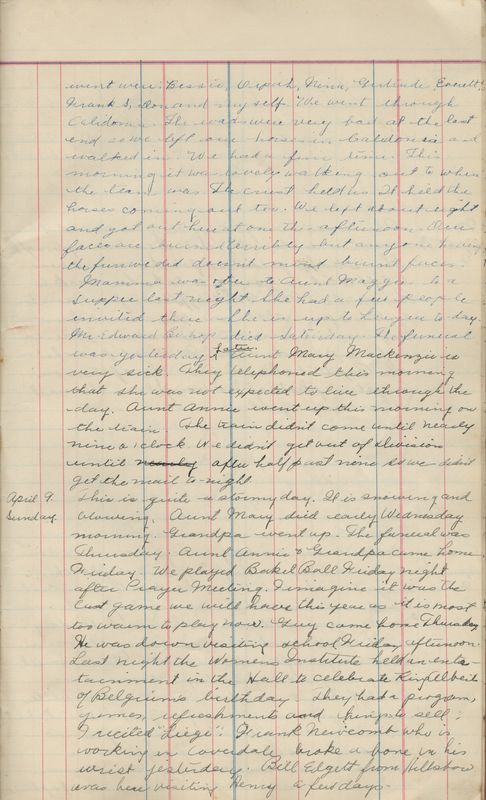 went were: Bessie, Orpah, Nina, Gertrude, Everett,
Frank S, Don and my self. We went through
Caledonia. The roads were very bad at the last
end so we left our horses in Caledonia and
walked in. We had a fine time. This
morning it was lovely walking out to where
the team was. The crust held us. It held the
horses coming out too. We left about eight
and got out here at one this afternoon. Our
faces are burned terribly but anyone having
the fun we did doesn't mind burnt faces.
Mamma was over to Aunt Maggie to a
supper last night. She had a few people
invited there. She is up to Lea to day.
Mr. Edward Bishop died Saturday. The funeral
was yesterday. Later Aunt Mary Mackenzie is
very sick. They telephoned this morning
that she was not expected to live through the
day. Aunt Annie went up this morning on
the train. The train didn't come until nearly
nine o'clock. We didn't get out of Division
until nearly after half past nine so we didn't
get the mail to night.
April 9. This is quite a stormy day. It is snowing and
Sunday. blowing. Aunt Mary died early Wednesday
morning. Grandpa went up. The funeral was
Thursday. Aunt Annie & Grandpa came home
Friday. We played Basket Ball Friday night
after Prayer Meeting. I imagine it was the
last game we will have this year as it is most
too warm to play now. Guy came home Thursday
He was down visiting school Friday afternoon.
Last night the Womens Institute held an enter-
tainment in the Hall to celebrate King Albert
of Belgium's birthday. They had a program,
games, refreshments and things to sell.
I recited "Liege". Frank Newcomb who is
working in Coverdale broke a bone in his
wrist yesterday. Bill Edgett from Hillsboro
was here visiting Henry a few days.